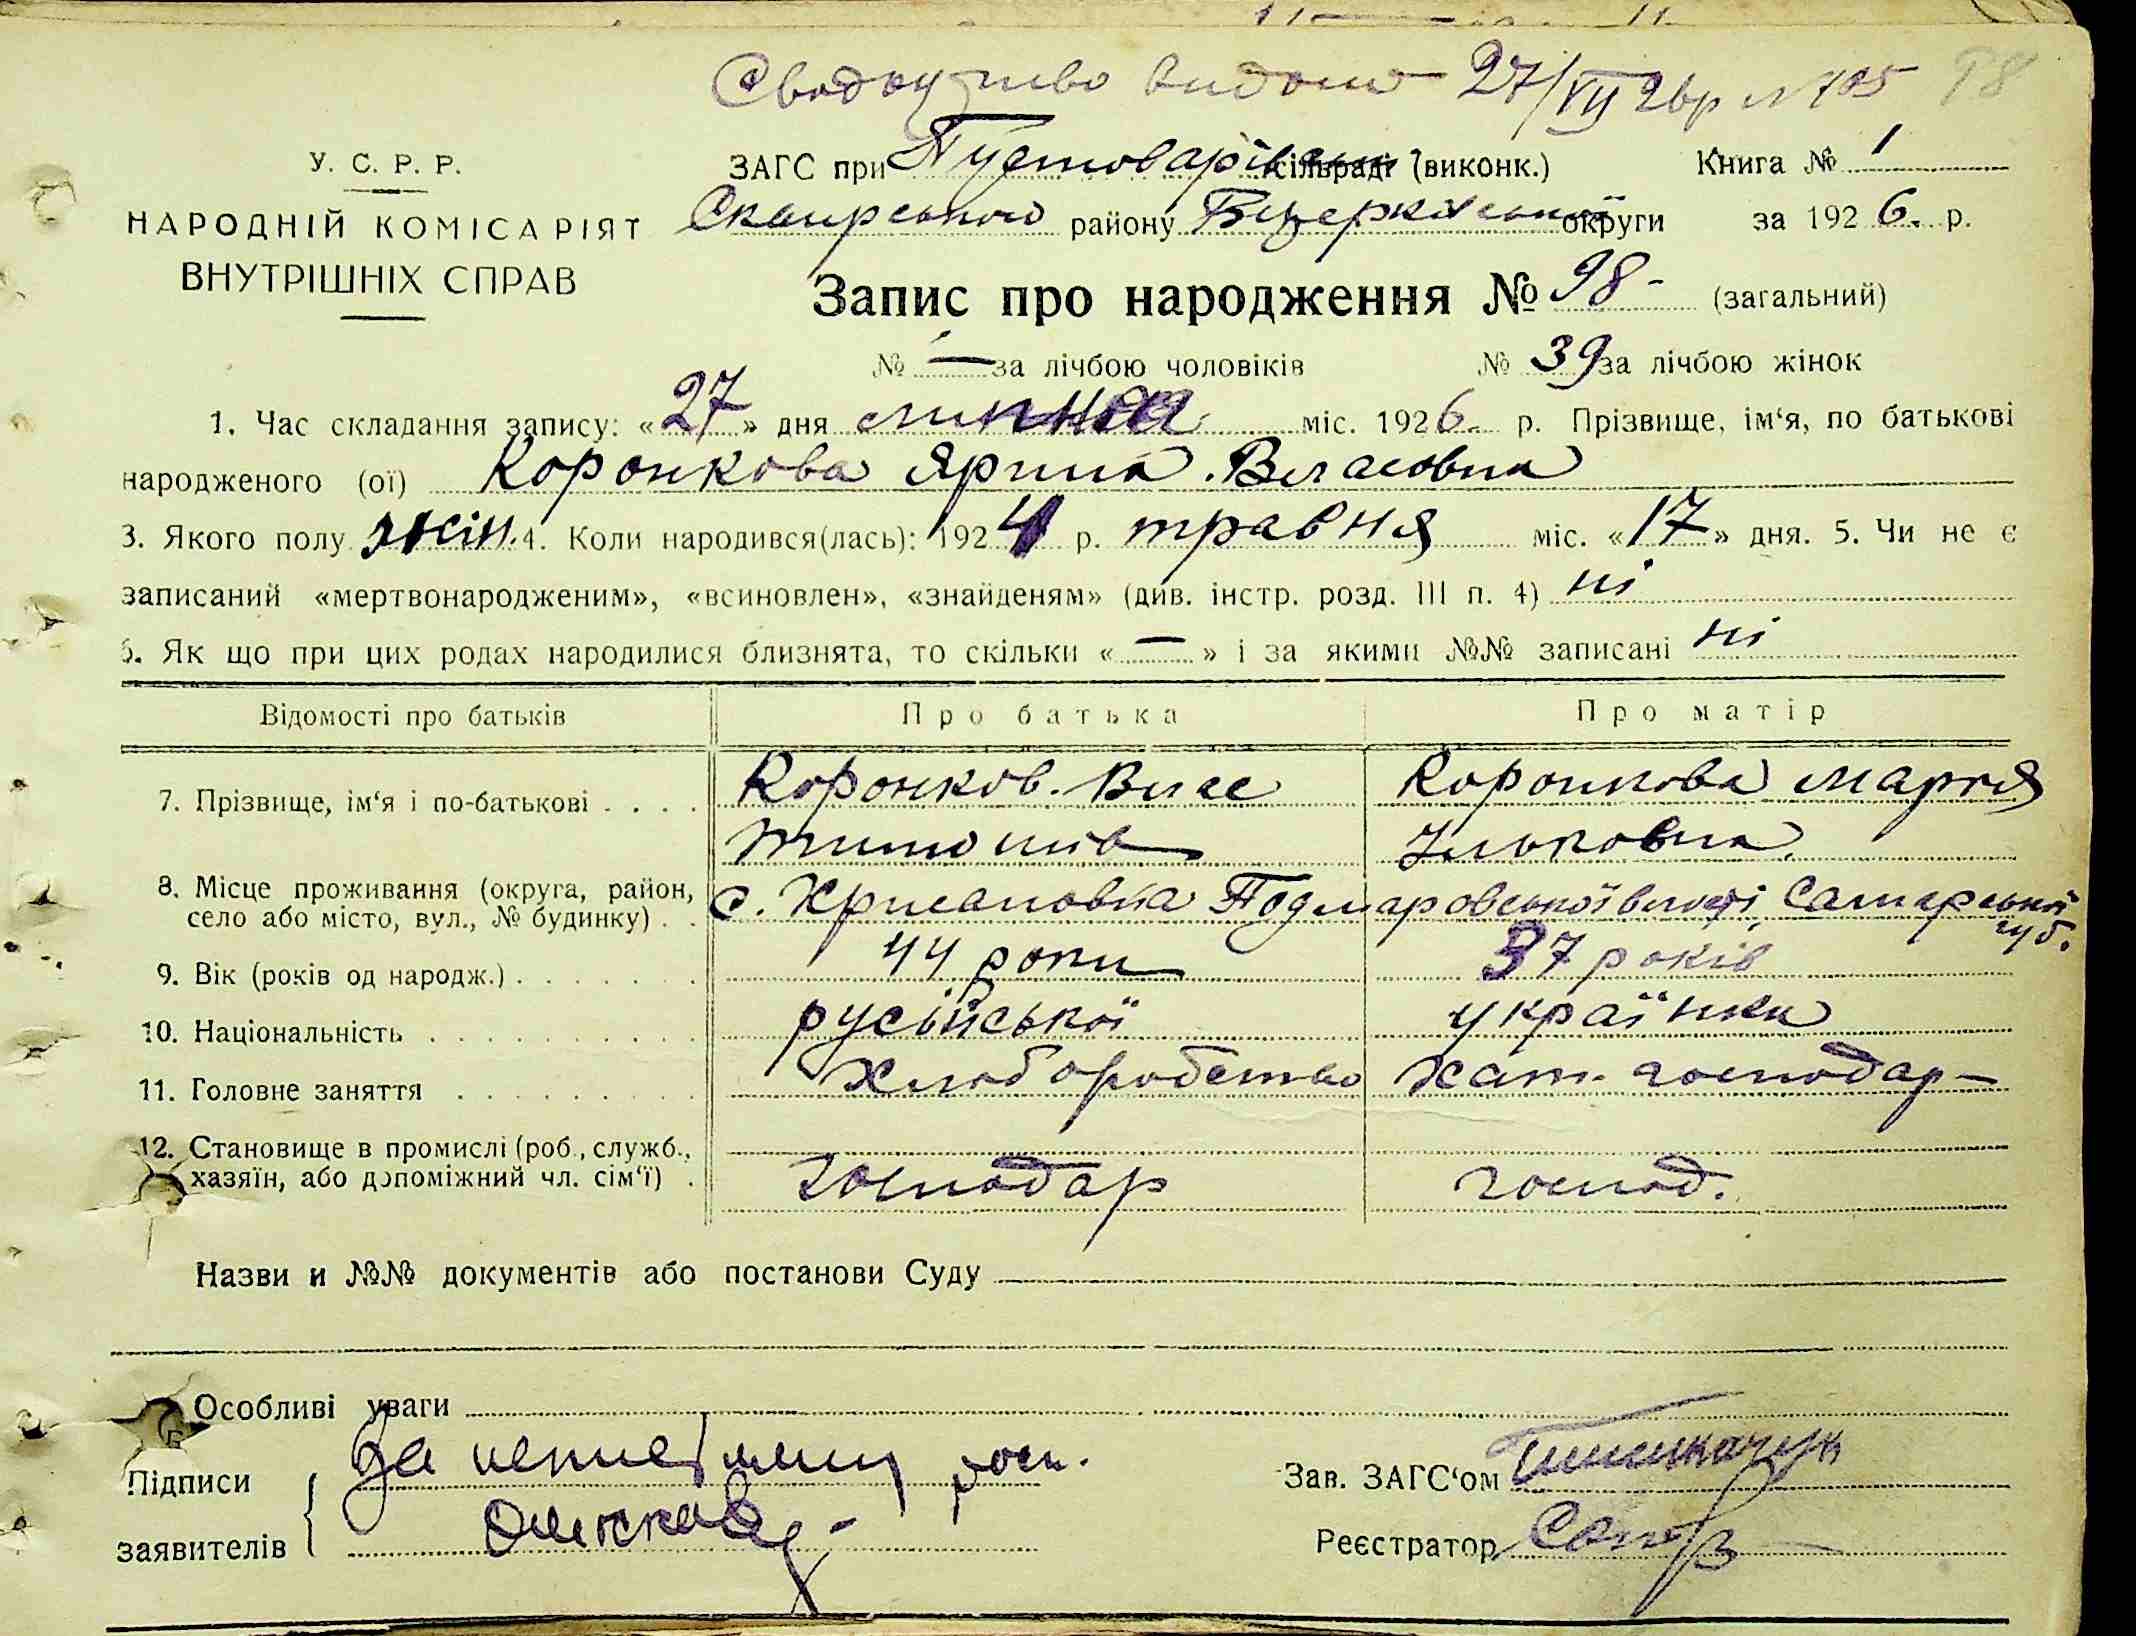 Свидоцтво видано 27/VII 26р № 105 98
У. С. Р. Р.
НАРОДНІЙ КОМІСАРІЯТ
ВНУТРІШНІХ СПРАВ
ЗАГС при Пустоварівськ. сільраді (виконк.) Книга № 1
Сквирського району Б церківської округи за 1926. р.
Запис про народження № 98- (загальний)
№ — за лічбою чоловіків № 39 за лічбою жінок
1. Час складання запису: «27» дня липня міс. 1926. р. Прізвище, ім‘я, по батькові
народженого (ої) Коронкова Ярина Власовна
3. Якого полу жін. 4. Коли народився(лась): 1924 р. травня міс. «17» дня. 5. Чи не є
записаний «мертвонародженим», «всиновлен», «знайденям» (див. інстр. розд. III п. 4) ні
6. Як що при цих родах народилися близнята, то скільки «—» і за якими №№ записані ні
Відомості про батьків Про батька Про матір
7. Прізвище, ім‘я і по-батькові . . . . Коронков Влас Коронкова Марія
Тимошів Ільковна
8. Місце проживання (округа, район, с. Хрисановка Самарської
село або місто, вул., № будинку) . . губ.
9. Вік (років од народж.) . . . . . . . 44 роки 37 років
10. Національність . . . . . . . . . . русьійської українка
11. Головне заняття . . . . . . . . . Хліборобство хат. господар-
12. Становище в промислі (роб., служб.,
хазяїн, або допоміжний чл. сім‘ї) . господар господ.
Назви и №№ документів або постанови Суду
Особливі уваги
Підписи За неписьмену росп.
заявителів
Зав. ЗАГС‘ом
Реєстратор